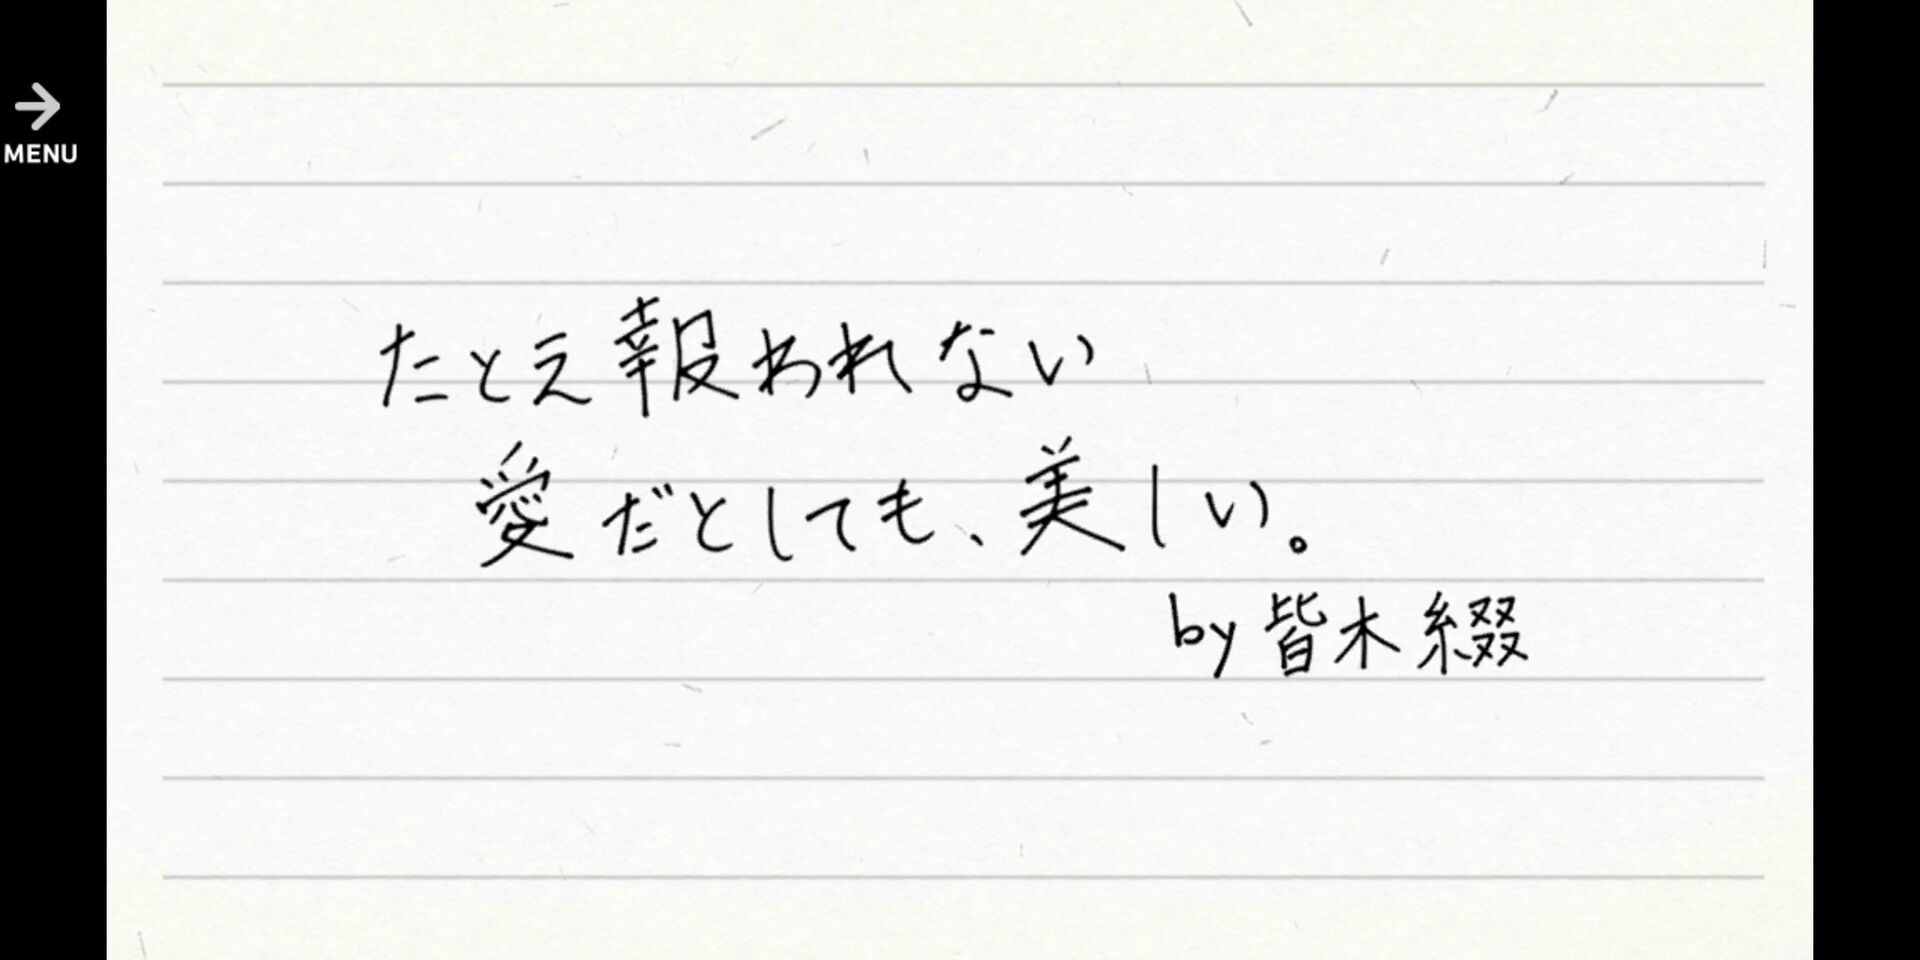 MENU
たとえ報われない
愛だとしても、美しい。
by 皆木綴